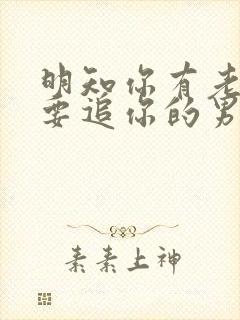 明知你有老
要追你的男
素素上神